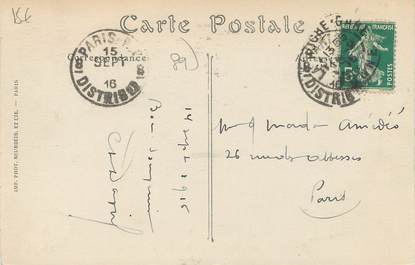 156
Carte Postale
PARIS
15
SEPT
16
DISTRIBON
Correspondance
89
14 Sept 1916
Bon Souvenir
IMP. PHOT. NEURDEIN ET CIE. — PARIS
POSTES
DISTRIB
M et Madame Amédée
26 rue des Abbesses
Paris